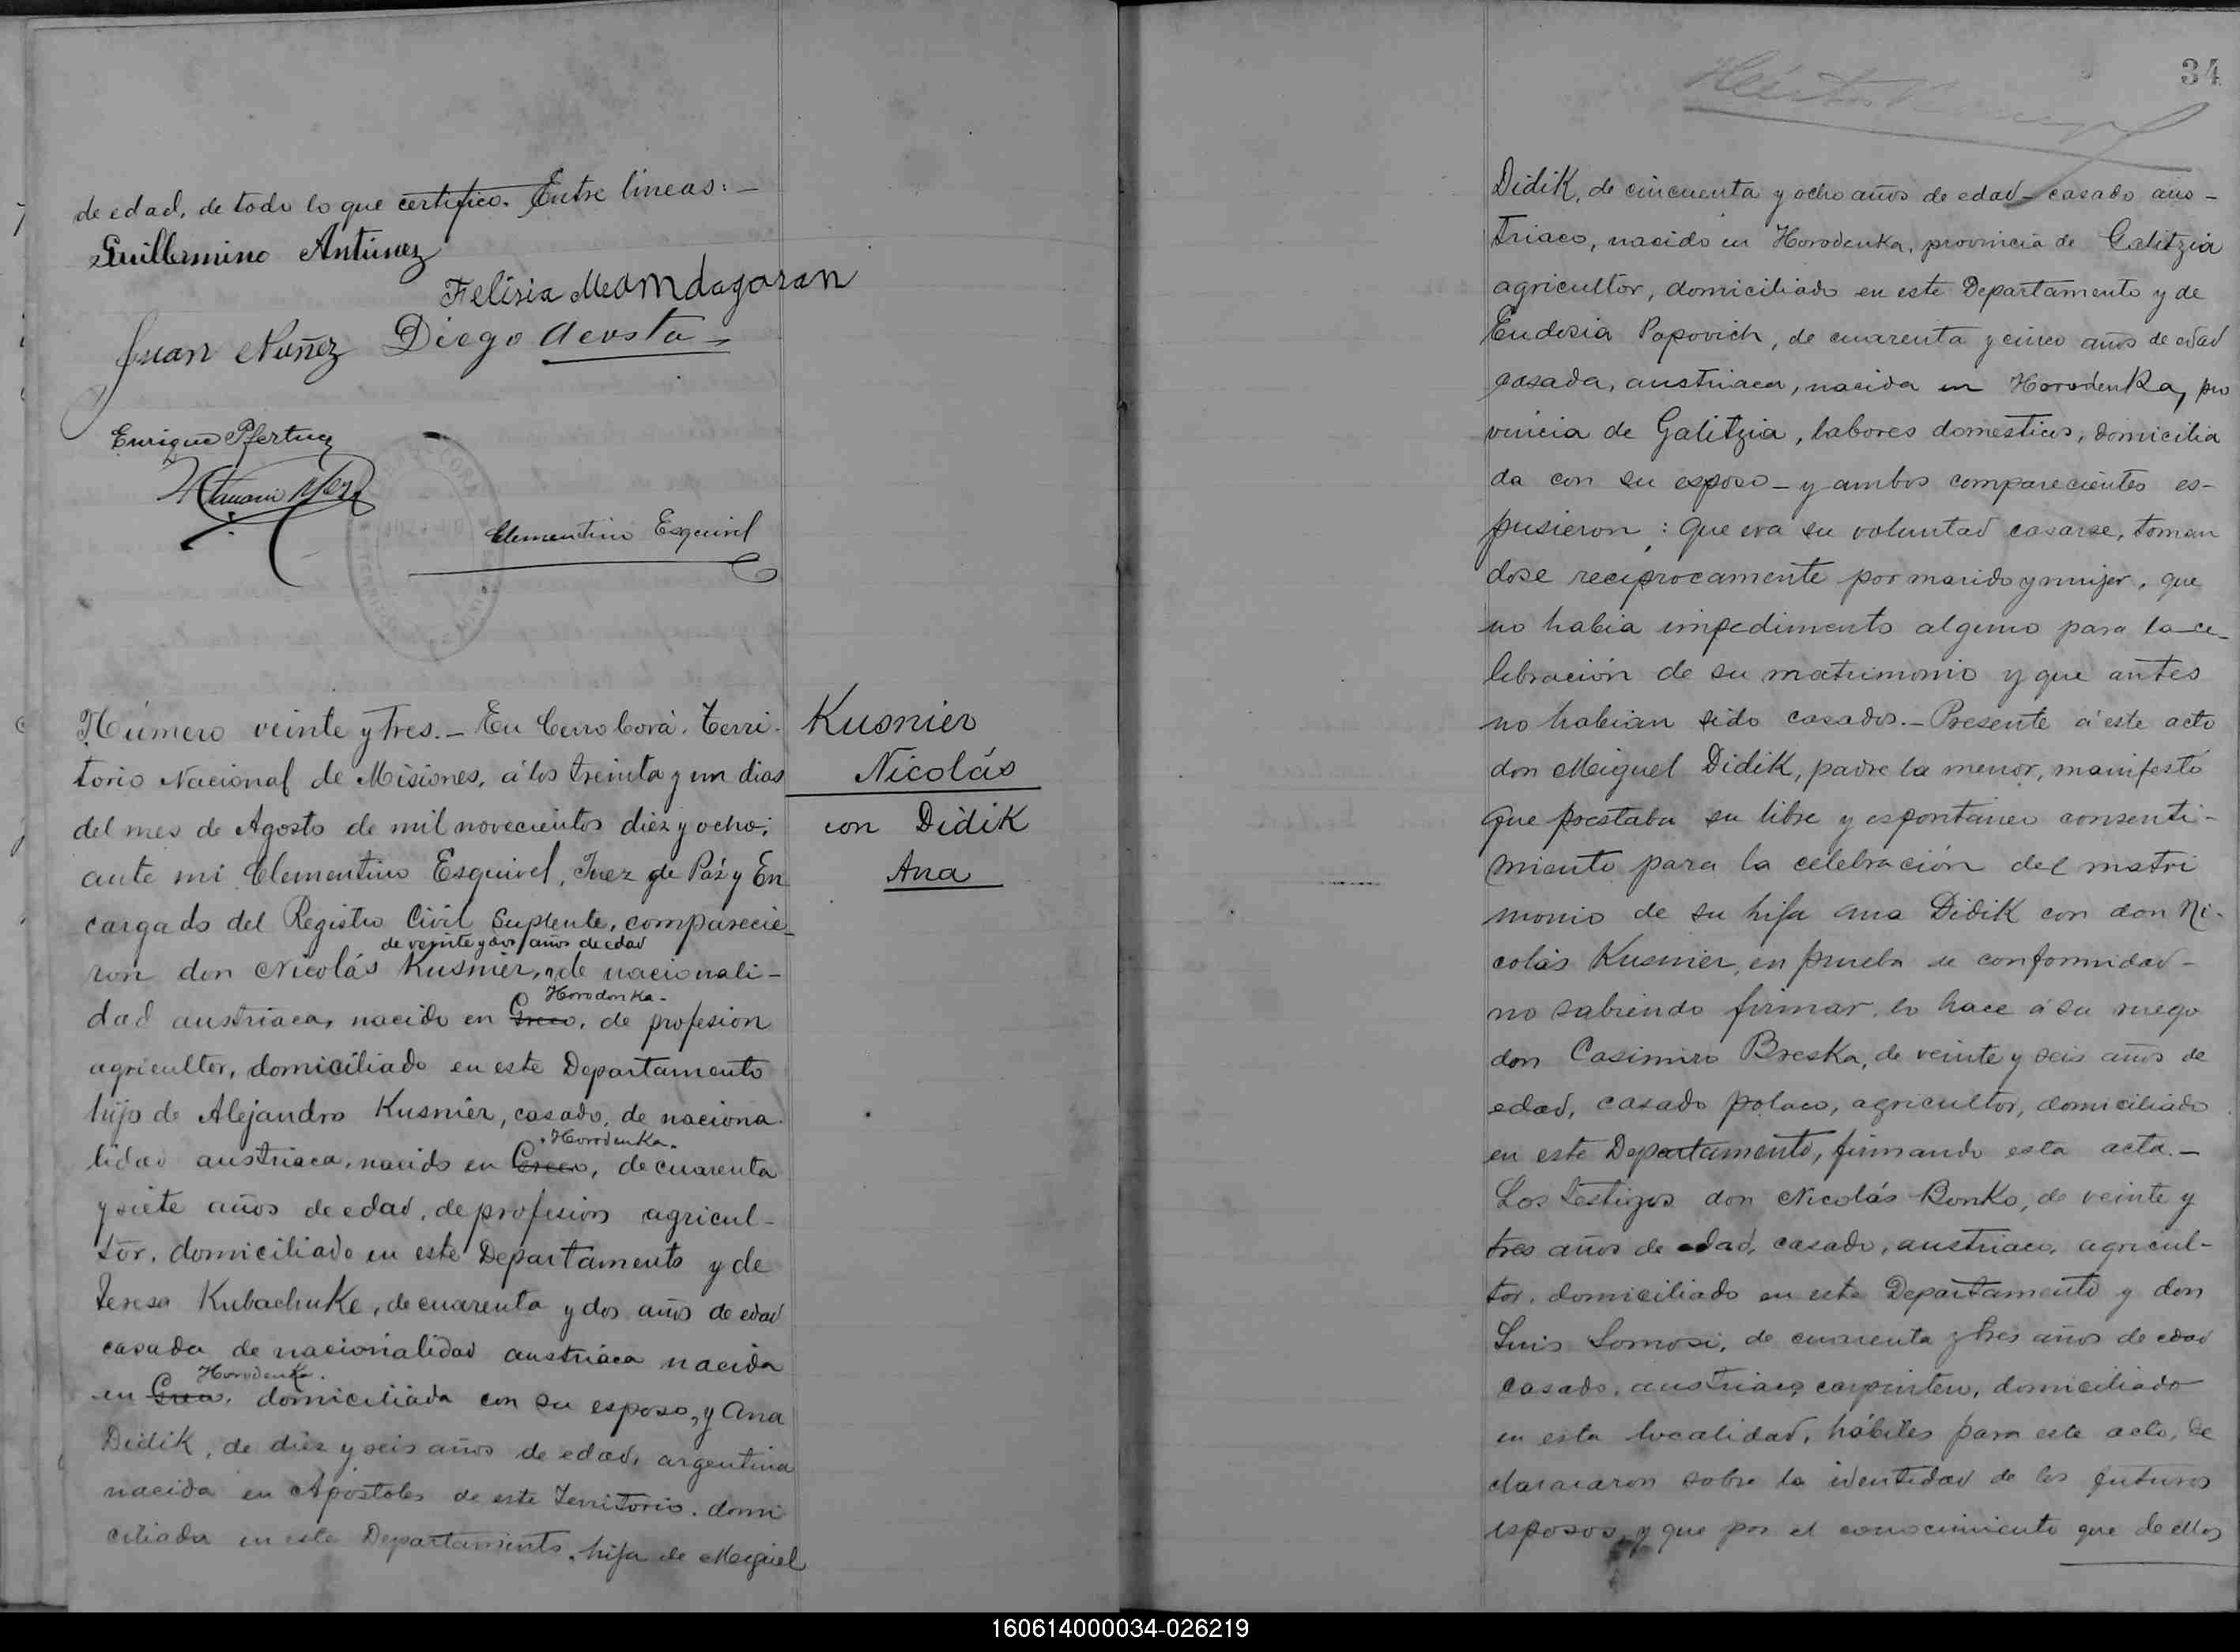 de edad, de todo lo que certifico. Entre lineas: -
Guillermino Antunez
Felisia Mamdagaran
Juan Nuñez Diego Acosta
Enrique Pfertner
Clementino Esquivel
Número veinte y tres. - En Cerro Corá, Terri-
torio Nacional de Misiones, á los treinta y un dias
del mes de Agosto de mil novecientos diez y ocho;
ante mi Clementino Esquivel, Juez de Páz y En
cargado del Registro Civil Suplente, comparecie-
de veinte y dos años de edad
ron don Nicolás Kusnier, de nacionali-
Horodonka -
dad austriaca, nacido en Greco, de profesion
agricultor, domiciliado en este Departamento
hijo de Alejandro Kusnier, casado, de naciona-
Horodenka.
lidad austriaca, nacido en Greco, de cuarenta
y siete años de edad, de profesión agricul-
tor, domiciliado en este Departamento y de
Teresa Kubachuke, de cuarenta y dos años de edad
casada de nacionalidad austriaca nacida
Horodenka.
en Greco, domiciliada con su esposo, y Ana
Didik, de diez y seis años de edad, argentina
nacida en Apóstoles de este Territorio, domi
ciliada en este Departamento, hija de Miguel
Kusnier
Nicolás
con Didik
Ana
34
Didik, de cincuenta y ocho años de edad - casado aus-
triaco, nacido en Horodenka, provincia de Galitzia
agricultor, domiciliado en este Departamento y de
Eudosia Popovich, de cuarenta y cinco años de edad
casada, austriaca, nacida en Horodenka, pro
vincia de Galitzia, labores domesticos, domicilia
da con su esposo - y ambos comparecientes es-
pusieron : que era su voluntad casarse, toman
dose reciprocamente por marido y mujer, que
no habia impedimento alguno para la ce-
lebración de su matrimonio y que antes
no habian sido casados. - Presente á este acto
don Miguel Didik, padre la menor, manifestó
que prestaba su libre y espontáneo consenti-
miento para la celebración del matri
monio de su hija Ana Didik con don Ni-
colás Kusnier, en prueba de conformidad -
no sabiendo firmar, lo hace á su ruego
don Casimiro Breska, de veinte y seis años de
edad, casado polaco, agricultor, domiciliado
en este Departamento, firmando esta acta. -
Los testigos don Nicolás Bonko, de veinte y
tres años de edad, casado, austriaco, agricul-
tor, domiciliado en este Departamento y don
Luis Somosi, de cuarenta y tres años de edad
casado, austriaco, carpintero, domiciliado
en esta localidad, hábiles para este acto, de
clararon sobre la identidad de los futuros
esposos, y que por el conocimiento que de ellos
160614000034-026219